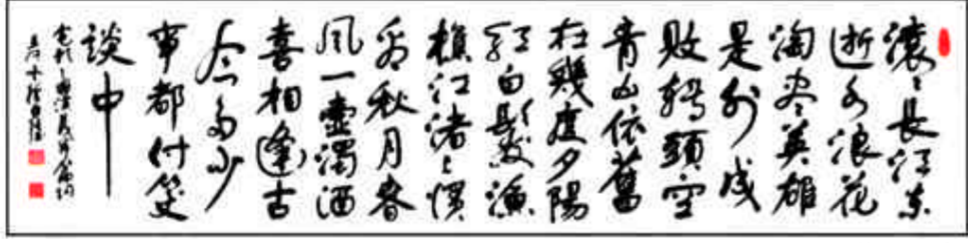 滚〻長江東
逝水浪花
淘尽英雄
是非成
敗轉頭空
青山依舊
在幾度夕陽
紅白髮漁
樵江渚上慣
看秋月春
風一壺濁酒
喜相逢古
今多少
事都付笑
談中